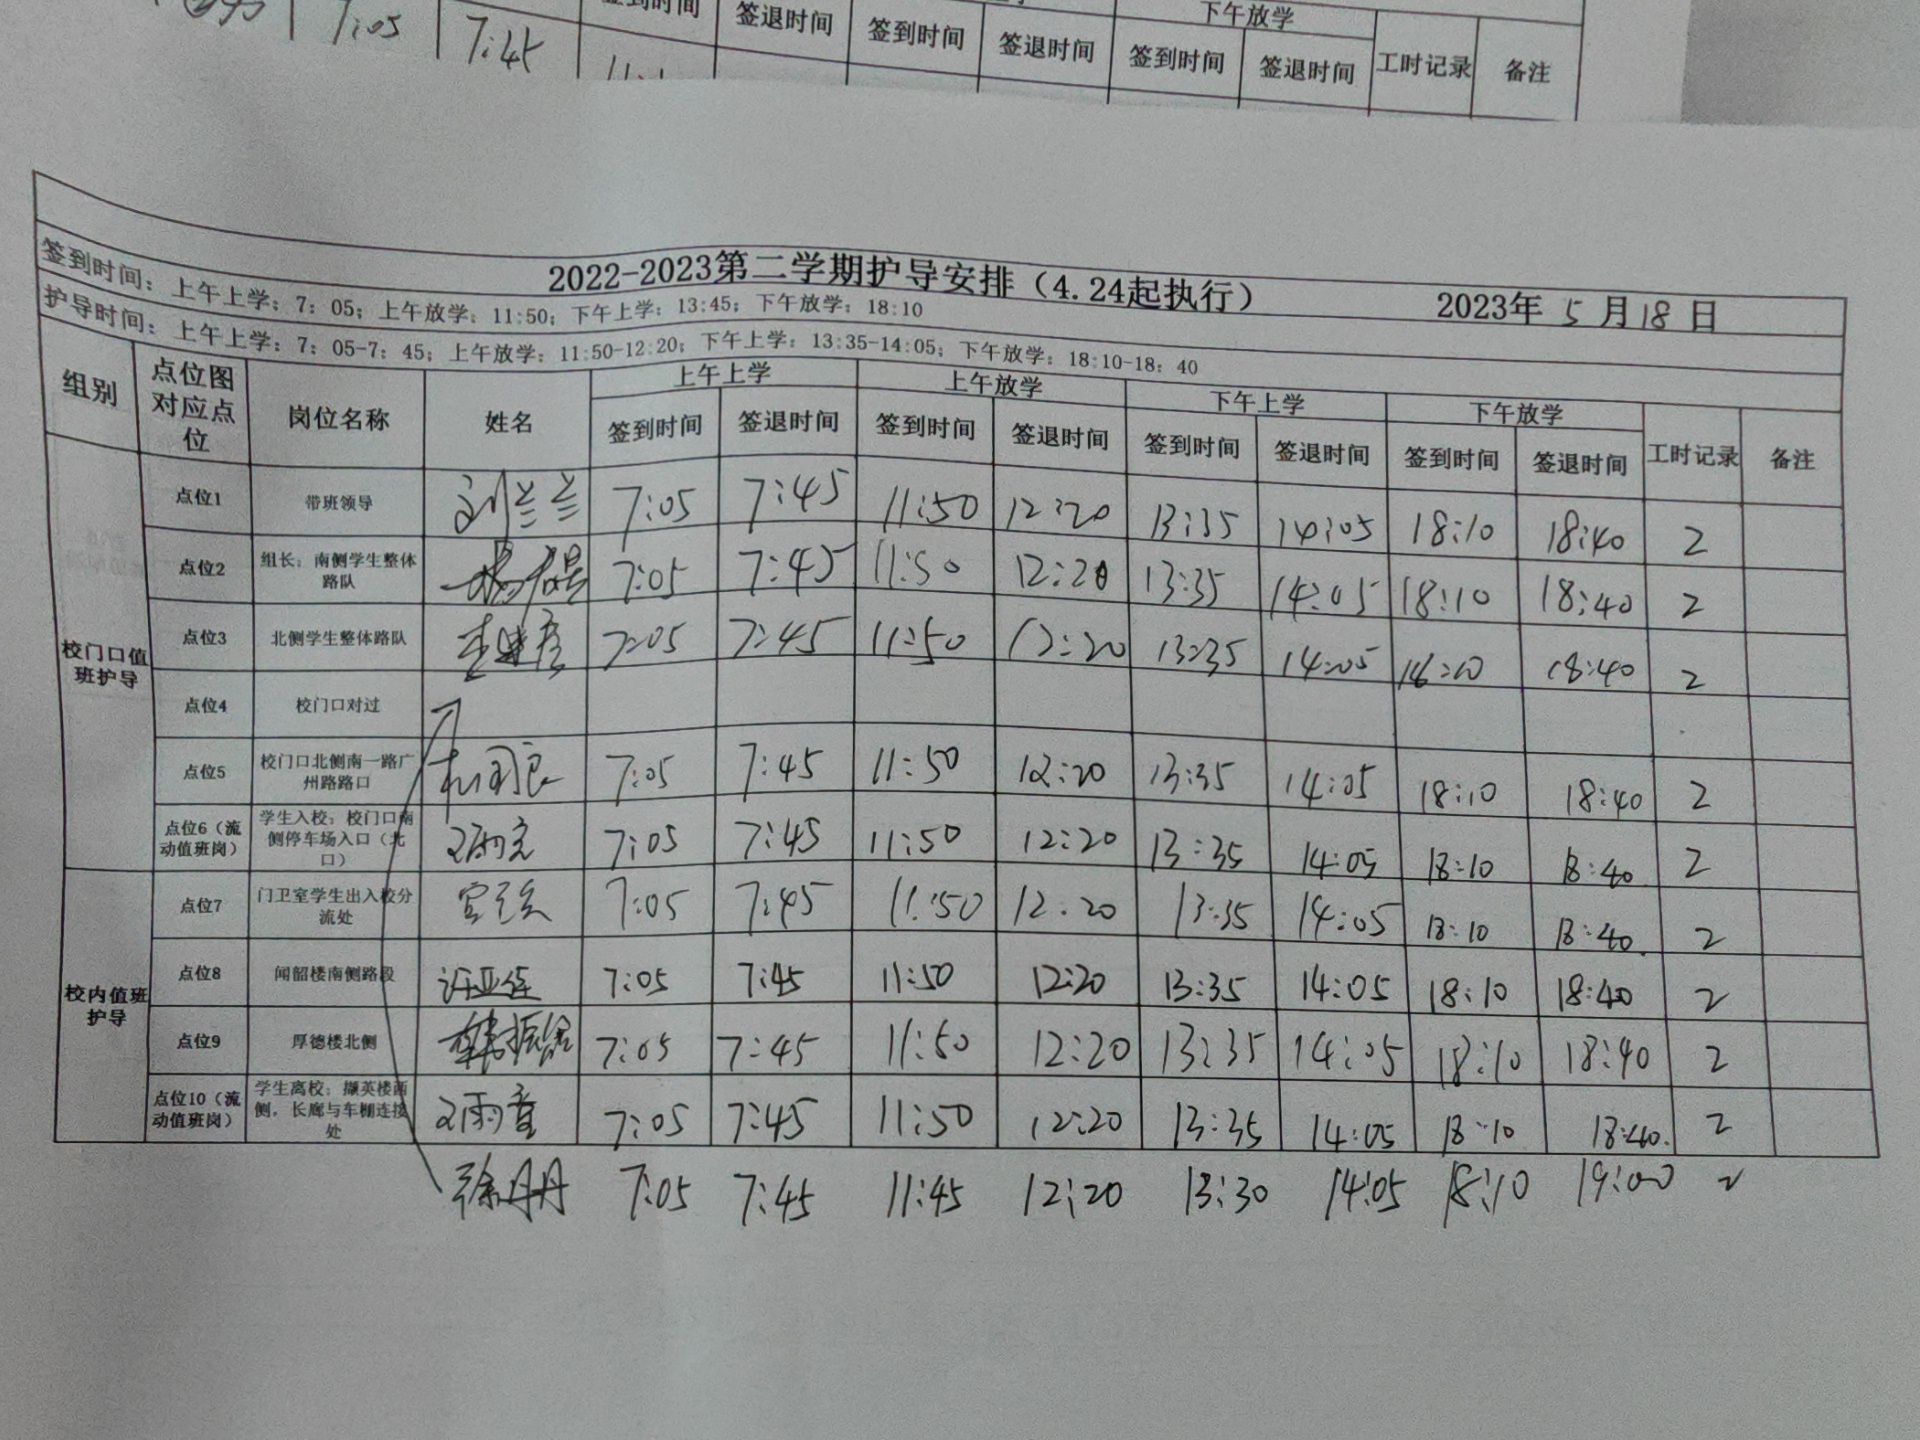 7:05 7:45 签到时间 签退时间 签到时间 签退时间 下午放学 签到时间 签退时间 工时记录 备注
2022-2023第二学期护导安排（4.24起执行） 2023年 5 月 18 日
签到时间：上午上学：7：05；上午放学：11:50；下午上学：13:45；下午放学：18:10
护导时间：上午上学：7：05-7：45；上午放学：11:50-12:20；下午上学：13:35-14:05；下午放学：18:10-18：40
组别 点位图对应点位 岗位名称 姓名 上午上学 上午放学 下午上学 下午放学 工时记录 备注
签到时间 签退时间 签到时间 签退时间 签到时间 签退时间 签到时间 签退时间
校门口值班护导
点位1 带班领导 刘兰兰 7:05 7:45 11:50 12:20 13:35 14:05 18:10 18:40 2
点位2 组长；南侧学生整体路队 7:05 7:45 11:50 12:20 13:35 14:05 18:10 18:40 2
点位3 北侧学生整体路队 7:05 7:45 11:50 12:20 13:35 14:05 18:40 2
点位4 校门口对过
点位5 校门口北侧南一路广州路路口 7:05 7:45 11:50 12:20 13:35 14:05 18:10 18:40 2
点位6（流动值班岗） 学生入校：校门口南侧停车场入口（北口） 7:05 7:45 11:50 12:20 13:35 14:05 18:10 18:40 2
校内值班护导
点位7 门卫室学生出入校分流处 7:05 7:45 11:50 12:20 13:35 14:05 18:10 18:40 2
点位8 闻韶楼南侧路段 7:05 7:45 11:50 12:20 13:35 14:05 18:10 18:40 2
点位9 厚德楼北侧 7:05 7:45 11:50 12:20 13:35 14:05 18:10 18:40 2
点位10（流动值班岗） 学生离校：撷英楼西侧，长廊与车棚连接处 7:05 7:45 11:50 12:20 13:35 14:05 18:10 18:40 2
徐丹丹 7:05 7:45 11:45 12:20 13:30 14:05 18:10 19:00 2